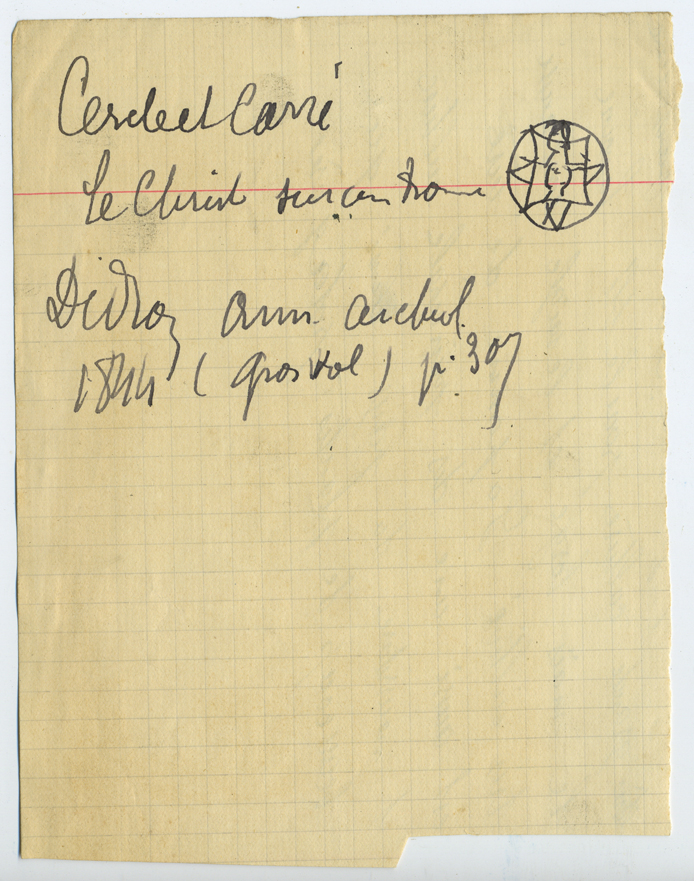 Cercle et Carré
Le Christ sur un trone
Didron ann. archeol.
1844 (gros vol) p. 307